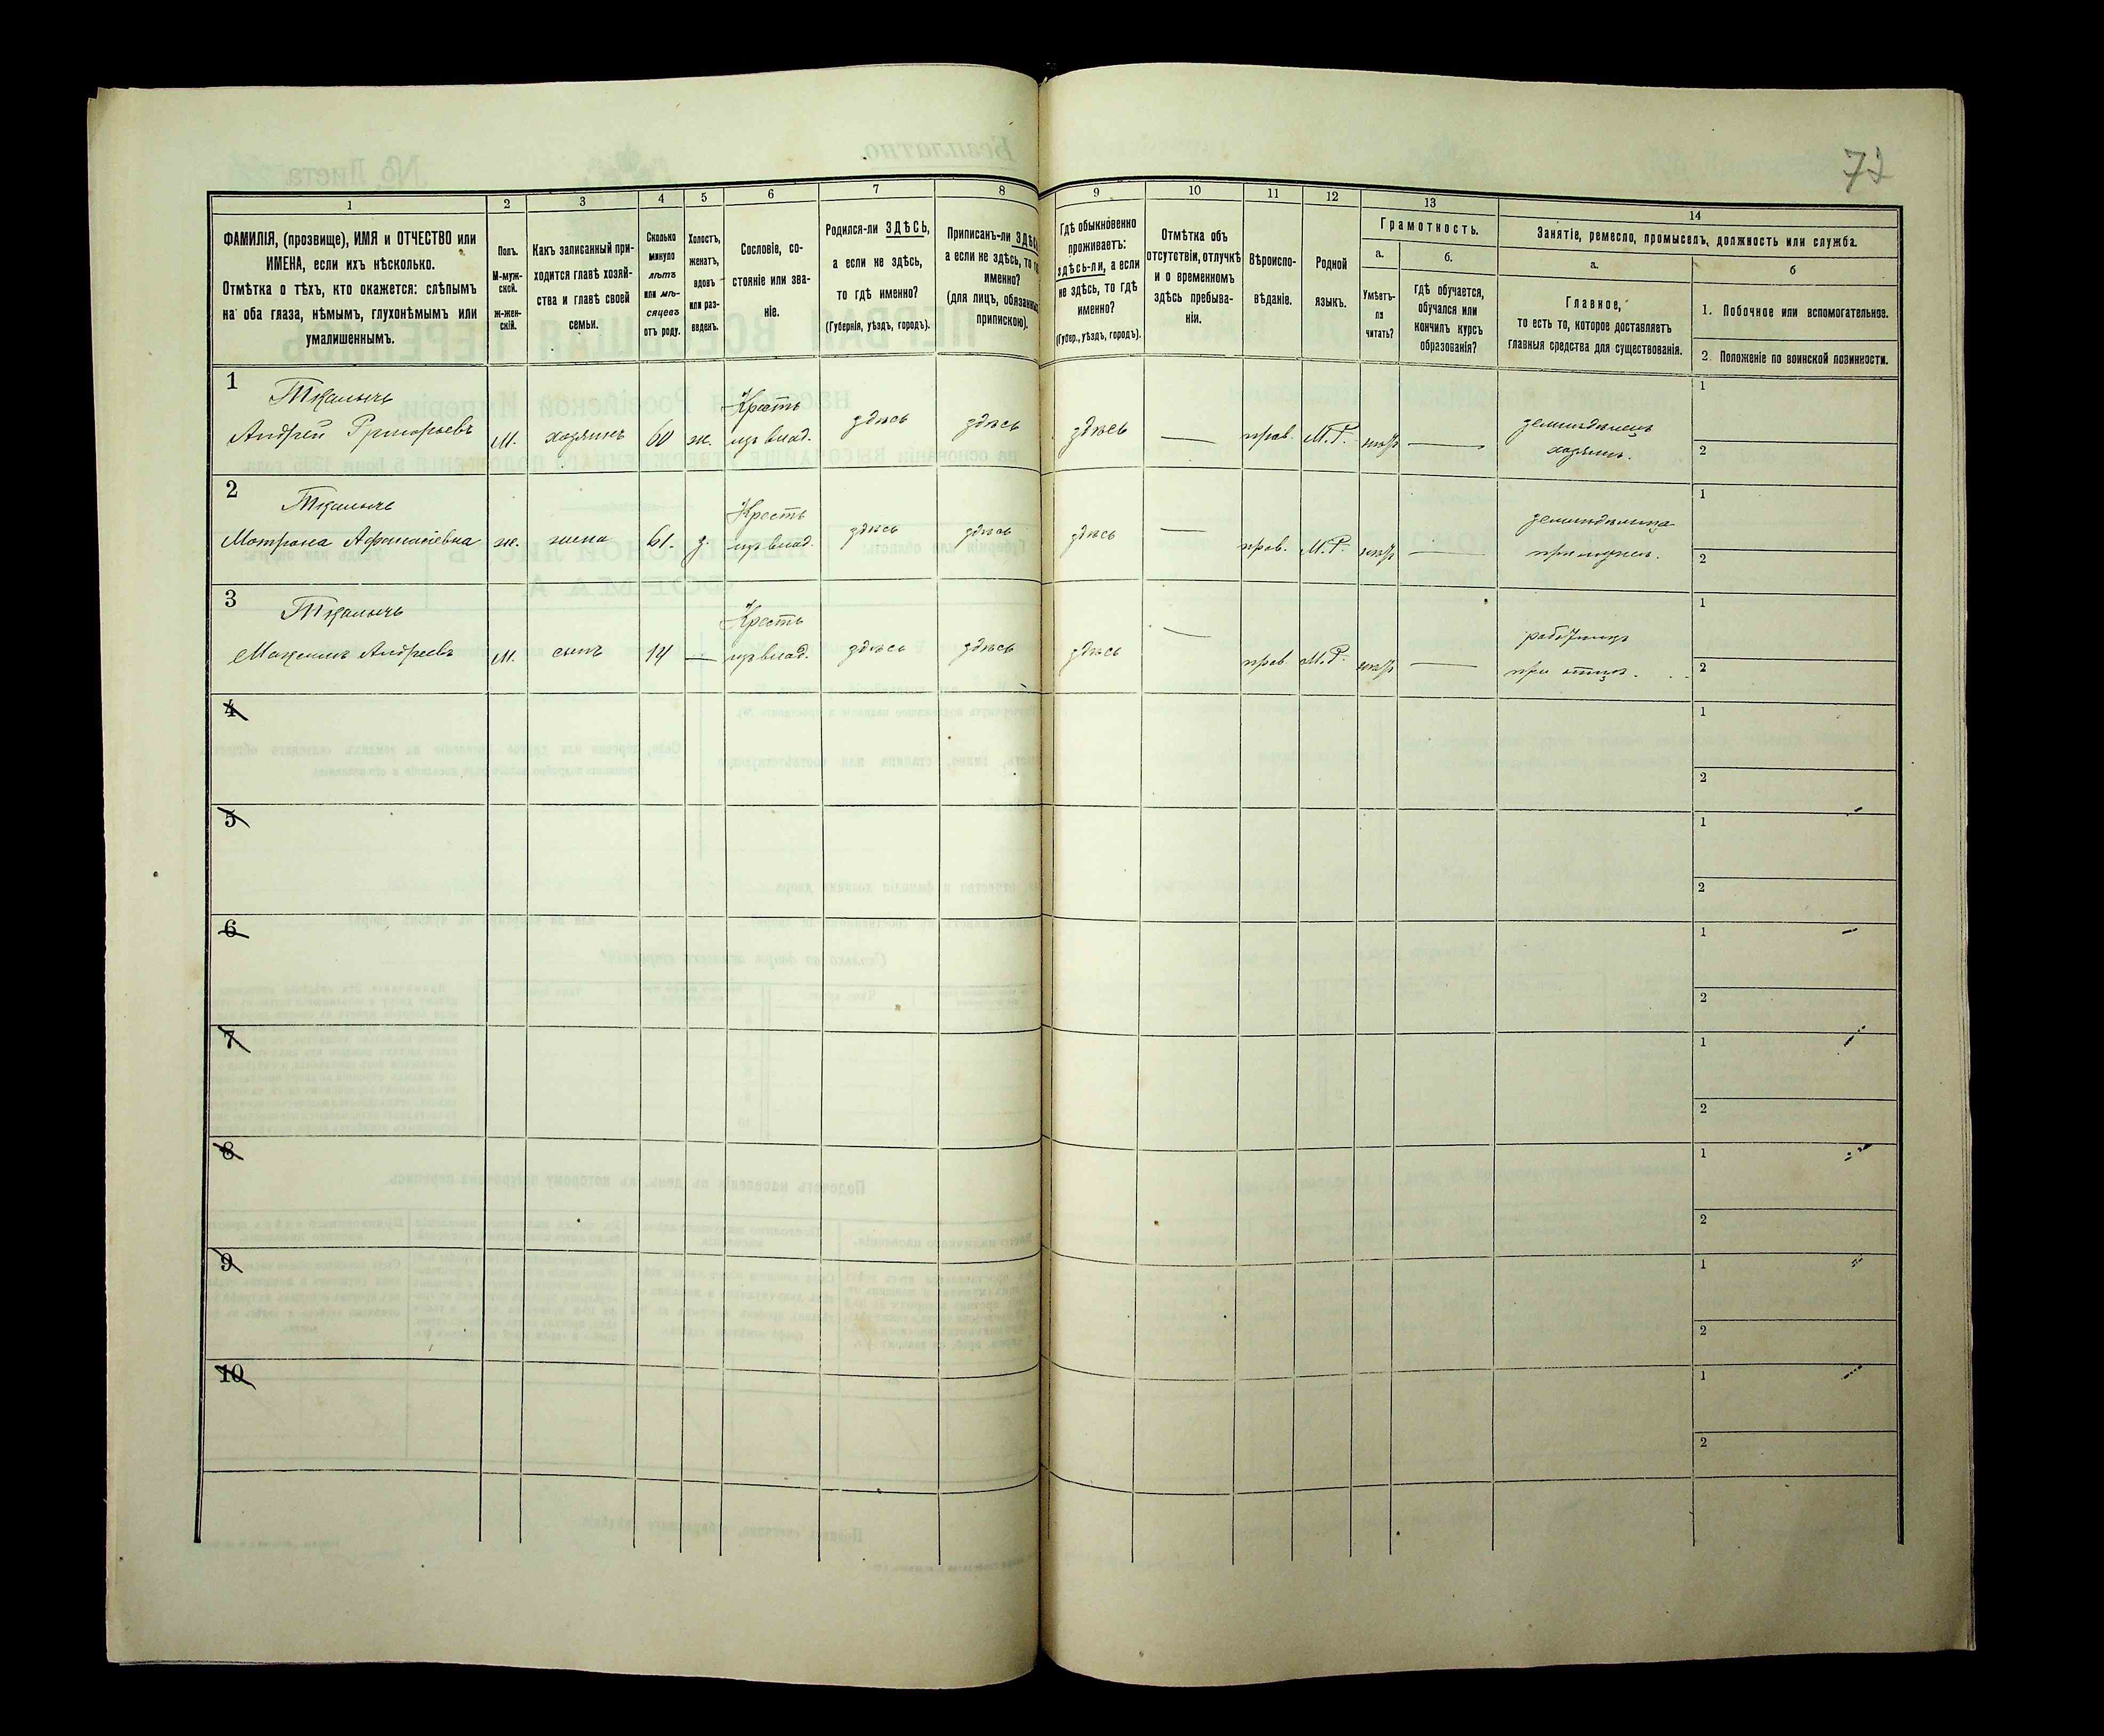 72
1
2
3
4
5
6
7
8
9
10
11
12
13
14
ФАМИЛІЯ, (прозвище), ИМЯ и ОТЧЕСТВО или
ИМЕНА, если ихъ нѣсколько.
Отмѣтка о тѣхъ, кто окажется: слѣпымъ
на оба глаза, нѣмымъ, глухонѣмымъ или
умалишеннымъ.
Полъ.
М-муж-
ской.
ж-жен-
скій.
Какъ записанный при-
ходится главѣ хозяй-
ства и главѣ своей
семьи.
Сколько
минуло
лѣтъ
или мѣ-
сяцевъ
отъ роду.
Холостъ,
женатъ,
вдовъ
или раз-
веденъ.
Сословіе, со-
стояніе или зва-
ніе.
Родился-ли ЗДѢСЬ,
а если не здѣсь,
то гдѣ именно?
(Губернія, уѣздъ, городъ).
Приписанъ-ли ЗДѢСЬ
а если не здѣсь, то гдѣ
именно?
(для лицъ, обязанныхъ
припискою).
Гдѣ обыкновенно
проживаетъ:
здѣсь-ли, а если
не здѣсь, то гдѣ
именно?
(Губер., уѣздъ, городъ).
Отмѣтка объ
отсутствіи, отлучкѣ
и о временномъ
здѣсь пребыва-
ніи.
Вѣроиспо-
вѣданіе.
Родной
языкъ.
Грамотность.
а.
Умѣетъ-
ли
читать?
б.
гдѣ обучается,
обучался или
кончилъ курсъ
образованія?
Занятіе, ремесло, промыселъ, должность или служба.
а.
Главное,
то есть то, которое доставляетъ
главныя средства для существованія.
б
1. Побочное или вспомогательное.
2. Положеніе по воинской повинности.
1 Ткаличъ Кресть
Андрей Григорьевъ М. хозяинъ 60 ж. изъ влад. здѣсь здѣсь здѣсь — прав. М.Р. нѣтъ — земледѣлецъ
хозяинъ. 1
2
2 Ткаличъ Кресть
Матрона Афанасіевна ж. жена 61. з. изъ влад. здѣсь здѣсь здѣсь — прав. М.Р. нѣтъ — земледѣлица
при мужѣ. 1
2
3 Ткаличъ Кресть
Максимъ Андреевъ М. сынъ 14 — изъ влад. здѣсь здѣсь здѣсь — прав. М.Р. нѣтъ — работникъ
при отцѣ. 1
2
4 1
2
5 1
2
6 1
2
7 1
2
8 1
2
9 1
2
10 1
2